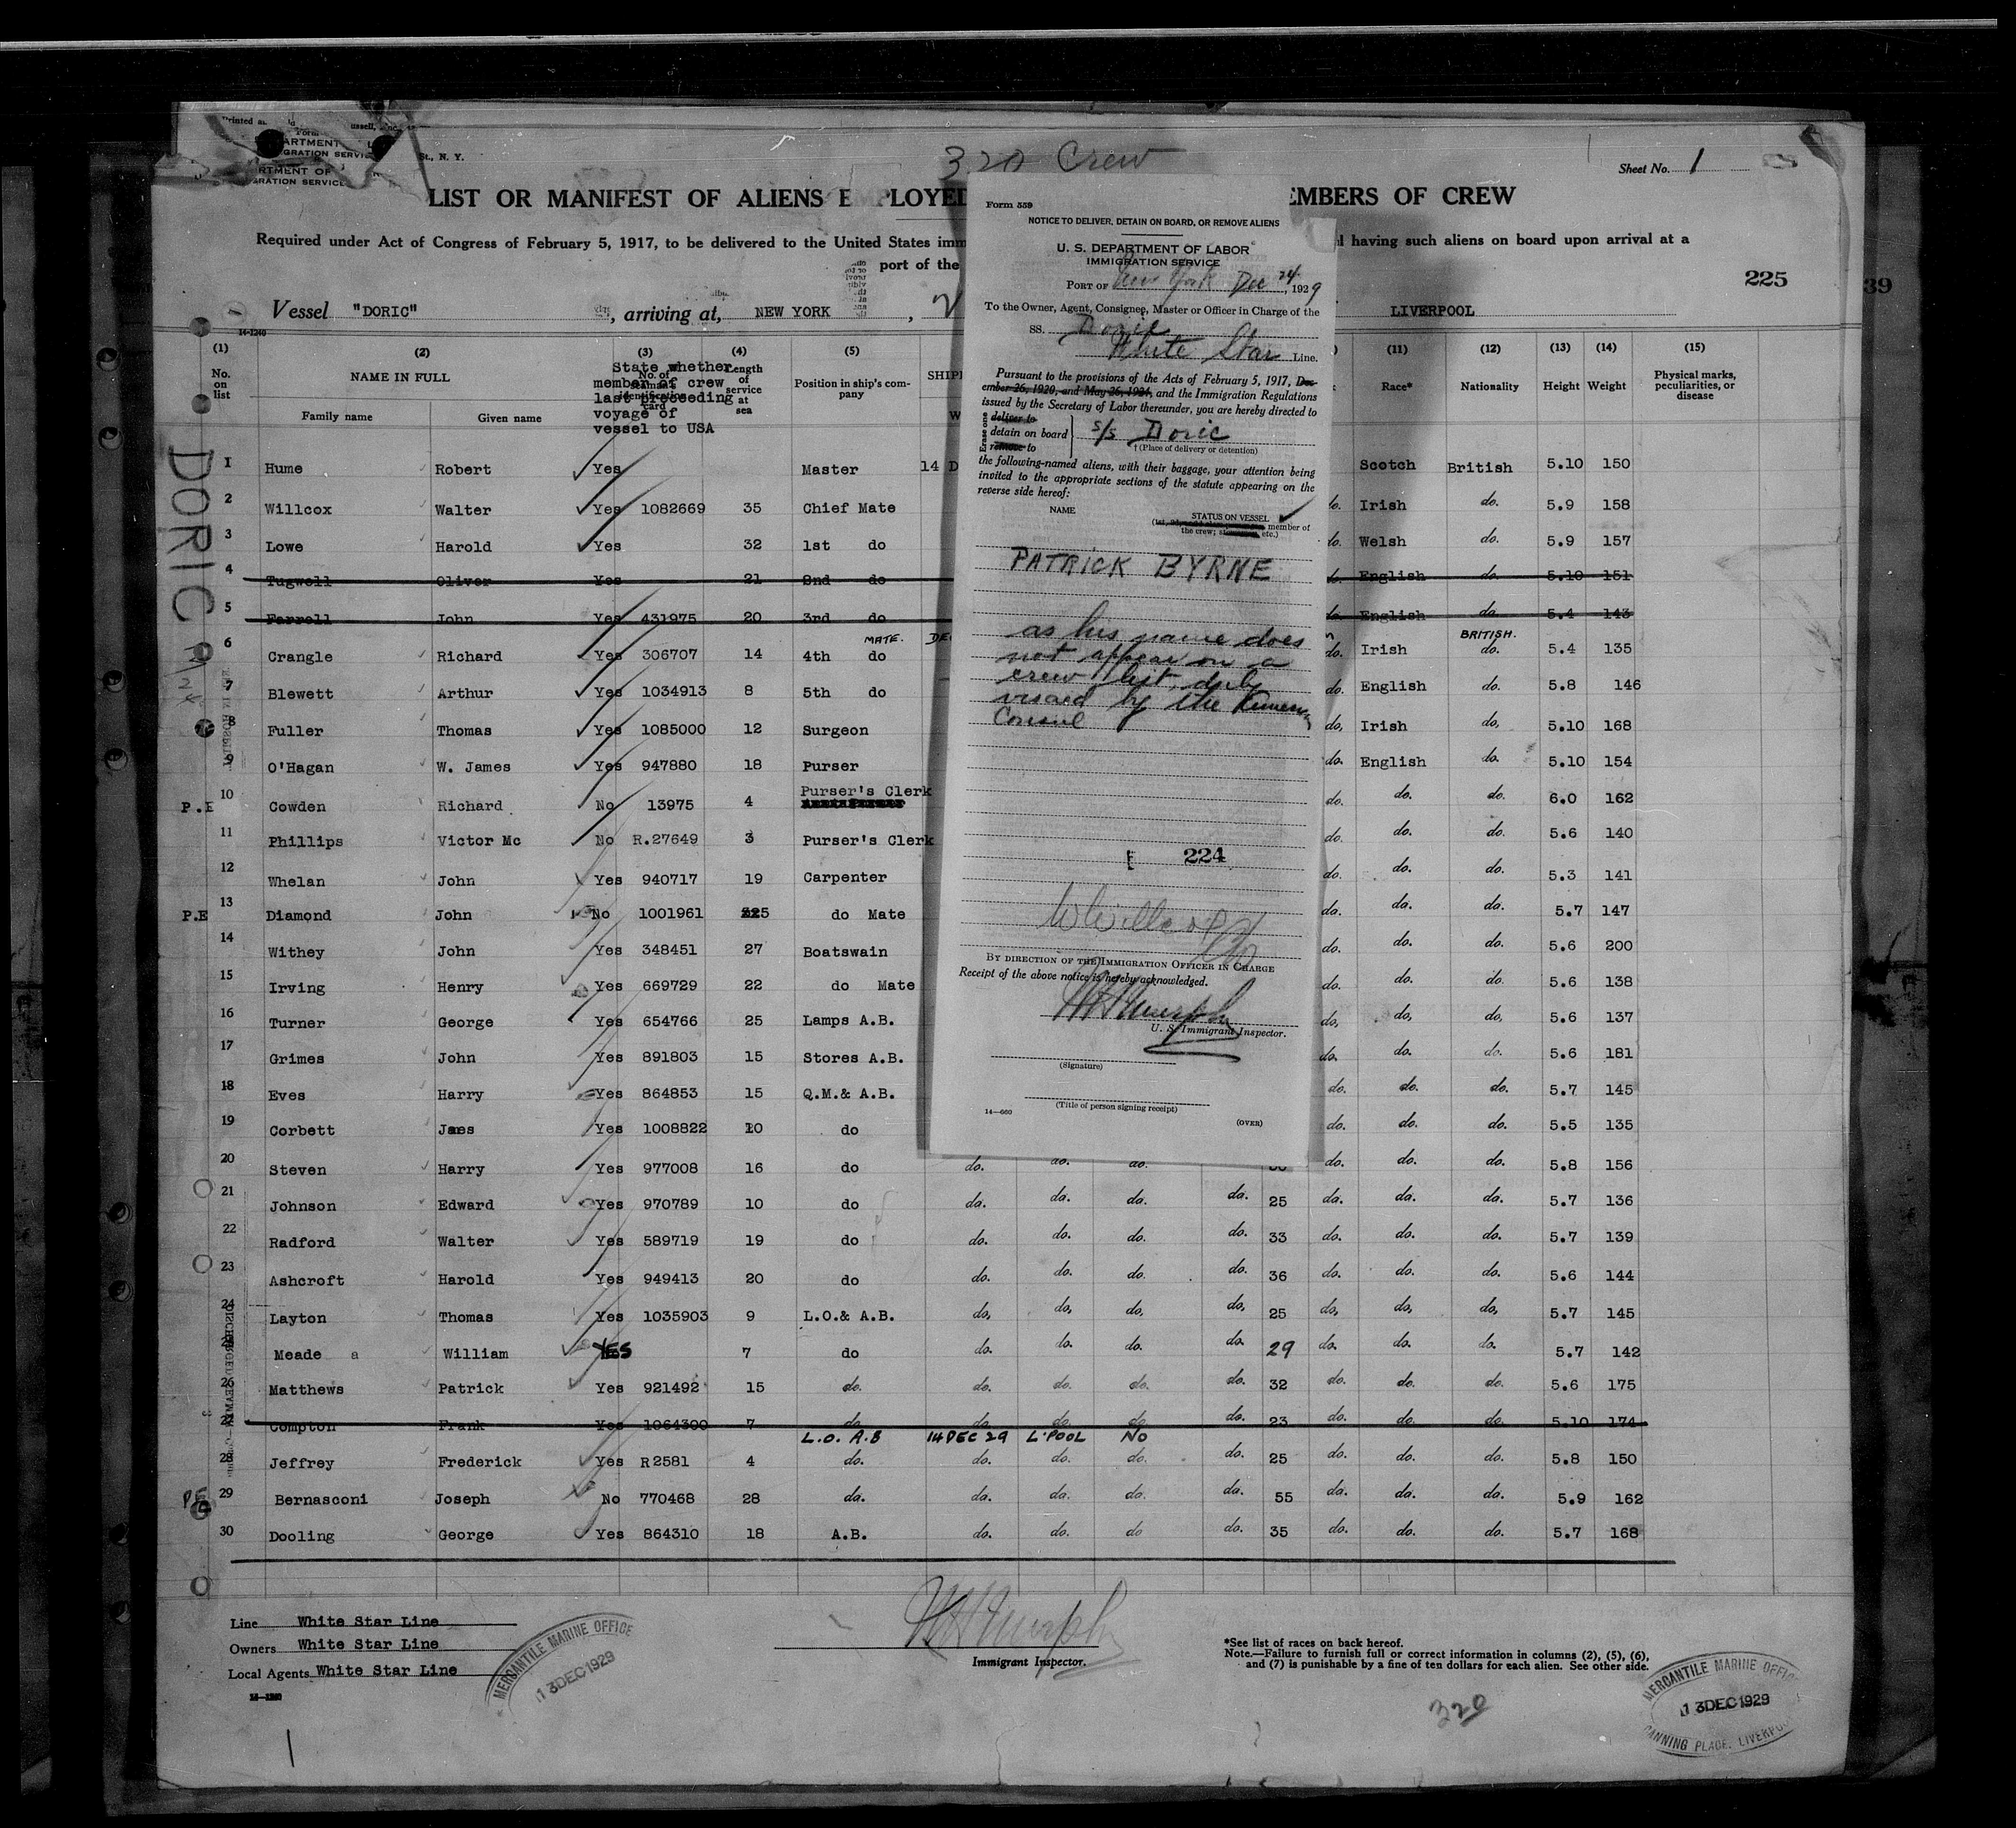 320 Crew
Sheet No. 1
St., N. Y.
LIST OR MANIFEST OF ALIENS EMPLOYED
EMBERS OF CREW
Required under Act of Congress of February 5, 1917, to be delivered to the United States imm
having such aliens on board upon arrival at a
port of the
225
39
Vessel "DORIC" , arriving at, NEW YORK ,
LIVERPOOL
14-1240
(1) (2) (3) (4) (5) (11) (12) (13) (14) (15)
No. on list
NAME IN FULL
Family name Given name
State whether
member of crew
last preceding
voyage of
vessel to USA
Length of service at sea
Position in ship's company
SHIP
Race* Nationality Height Weight Physical marks, peculiarities, or disease
DORIC
1 Hume Robert Yes Master 14 D Scotch British 5.10 150
2 Willcox Walter Yes 1082669 35 Chief Mate do. Irish do. 5.9 158
3 Lowe Harold Yes 32 1st do do. Welsh do. 5.9 157
4 Tugwell Oliver Yes 21 2nd do do. English do. 5.10 151
5 Farrell John Yes 431975 20 3rd do do. English do. 5.4 143
MATE. DEC BRITISH.
6 Crangle Richard Yes 306707 14 4th do do. Irish do. 5.4 135
7 Blewett Arthur Yes 1034913 8 5th do do. English do. 5.8 146
8 Fuller Thomas Yes 1085000 12 Surgeon do. Irish do. 5.10 168
9 O'Hagan W. James Yes 947880 18 Purser do. English do. 5.10 154
P.E 10 Cowden Richard No 13975 4 Purser's Clerk do. do. do. 6.0 162
11 Phillips Victor Mc No R.27649 3 Purser's Clerk do. do. do. 5.6 140
12 Whelan John Yes 940717 19 Carpenter do. do. do. 5.3 141
P.E 13 Diamond John No 1001961 25 do Mate do. do. do. 5.7 147
14 Withey John Yes 348451 27 Boatswain do. do. do. 5.6 200
15 Irving Henry Yes 669729 22 do Mate do. do. do. 5.6 138
16 Turner George Yes 654766 25 Lamps A.B. do. do. do. 5.6 137
17 Grimes John Yes 891803 15 Stores A.B. do. do. do. 5.6 181
18 Eves Harry Yes 864853 15 Q.M.& A.B. do. do. do. 5.7 145
19 Corbett James Yes 1008822 10 do do. do. do. 5.5 135
20 Steven Harry Yes 977008 16 do do. do. do. do. do. do. 5.8 156
21 Johnson Edward Yes 970789 10 do do. do. do. do. 25 do. do. do. 5.7 136
22 Radford Walter Yes 589719 19 do do. do. do. do. 33 do. do. do. 5.7 139
23 Ashcroft Harold Yes 949413 20 do do. do. do. do. 36 do. do. do. 5.6 144
24 Layton Thomas Yes 1035903 9 L.O.& A.B. do. do. do. do. 25 do. do. do. 5.7 145
Meade a William YES 7 do do. do. do. do. 29 do. do. do. 5.7 142
26 Matthews Patrick Yes 921492 15 do. do. do. do. do. 32 do. do. do. 5.6 175
27 Compton Frank Yes 1064300 7 do. do. do. do. do. 23 do. do. do. 5.10 174
L.O. A.B 14 DEC 29 L'POOL NO
28 Jeffrey Frederick Yes R2581 4 do. do. do. do. do. 25 do. do. do. 5.8 150
P.E 29 Bernasconi Joseph No 770468 28 do. do. do. do. do. 55 do. do. do. 5.9 162
30 Dooling George Yes 864310 18 A.B. do. do. do do. 35 do. do. do. 5.7 168
Form 559
NOTICE TO DELIVER, DETAIN ON BOARD, OR REMOVE ALIENS
U. S. DEPARTMENT OF LABOR
IMMIGRATION SERVICE
PORT OF New York Dec 24, 1929
To the Owner, Agent, Consignee, Master or Officer in Charge of the
SS. Doric
White Star Line.
Pursuant to the provisions of the Acts of February 5, 1917, Dec-
ember 26, 1920, and May 26, 1924, and the Immigration Regulations
issued by the Secretary of Labor thereunder, you are hereby directed to
Erase one
deliver to
detain on board S/S Doric
remove to †(Place of delivery or detention)
the following-named aliens, with their baggage, your attention being
invited to the appropriate sections of the statute appearing on the
reverse side hereof:
NAME STATUS ON VESSEL
member of
the crew; etc.)
PATRICK BYRNE
as his name does
not appear on a
crew list, duly
visaed by the
Consul
224
BY DIRECTION OF THE IMMIGRATION OFFICER IN CHARGE
Receipt of the above notice is hereby acknowledged.
U. S. Immigrant Inspector.
(Signature)
(Title of person signing receipt)
14—660
(OVER)
Line White Star Line
Owners White Star Line
Local Agents White Star Line
MERCANTILE MARINE OFFICE
13DEC1929
Immigrant Inspector.
*See list of races on back hereof.
Note.—Failure to furnish full or correct information in columns (2), (5), (6),
and (7) is punishable by a fine of ten dollars for each alien. See other side.
320
MERCANTILE MARINE OFFICE
13DEC1929
CANNING PLACE, LIVERPOOL
1